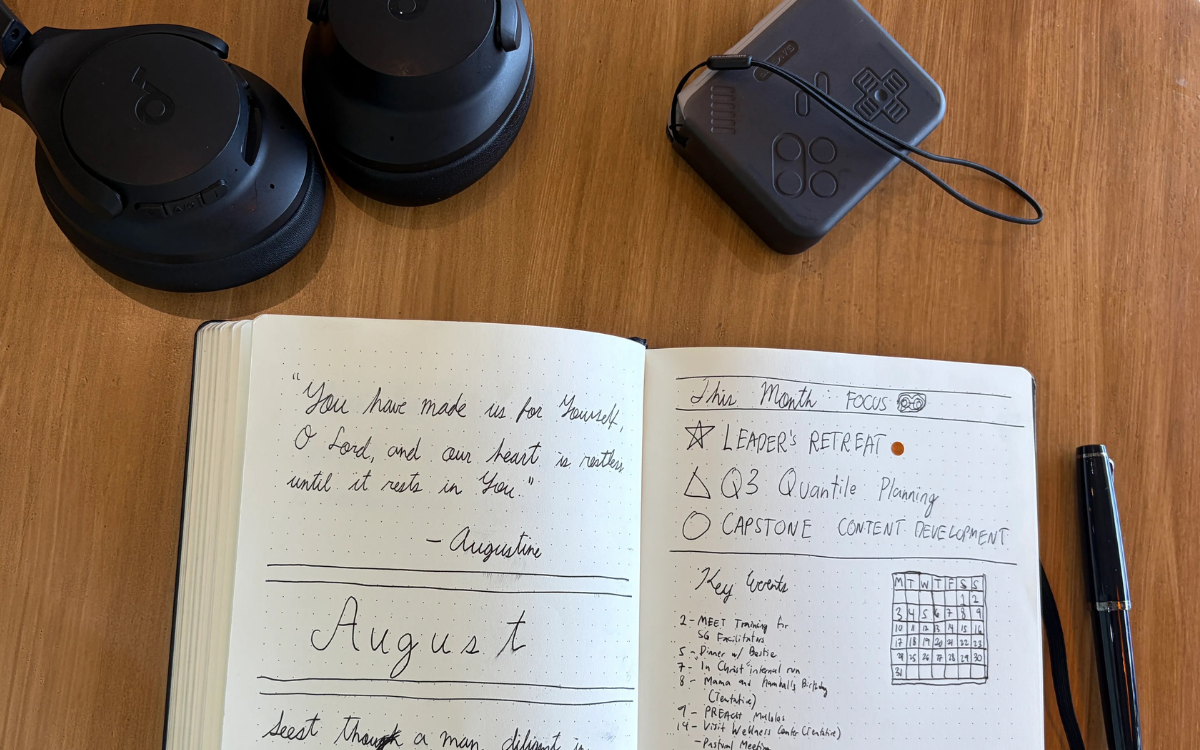 "You have made us for Yourself,
O Lord, and our heart is restless
until it rests in You."
- Augustine
August
Seest thou a man diligent in
This Month FOCUS
LEADER'S RETREAT
Q3 Quantile Planning
CAPSTONE CONTENT DEVELOPMENT
Key Events
2 - MEET Training for
SG Facilitators
5 - Dinner w/ Bestie
7 - In Christ internal run
8 - Mama and Birthday
(Tentative)
9 - PREACH
14 - Visit Wellness Center (Tentative)
- Pastoral Meeting
M T W T F S S
1 2
3 4 5 6 7 8 9
10 11 12 13 14 15 16
17 18 19 20 21 22 23
24 25 26 27 28 29 30
31